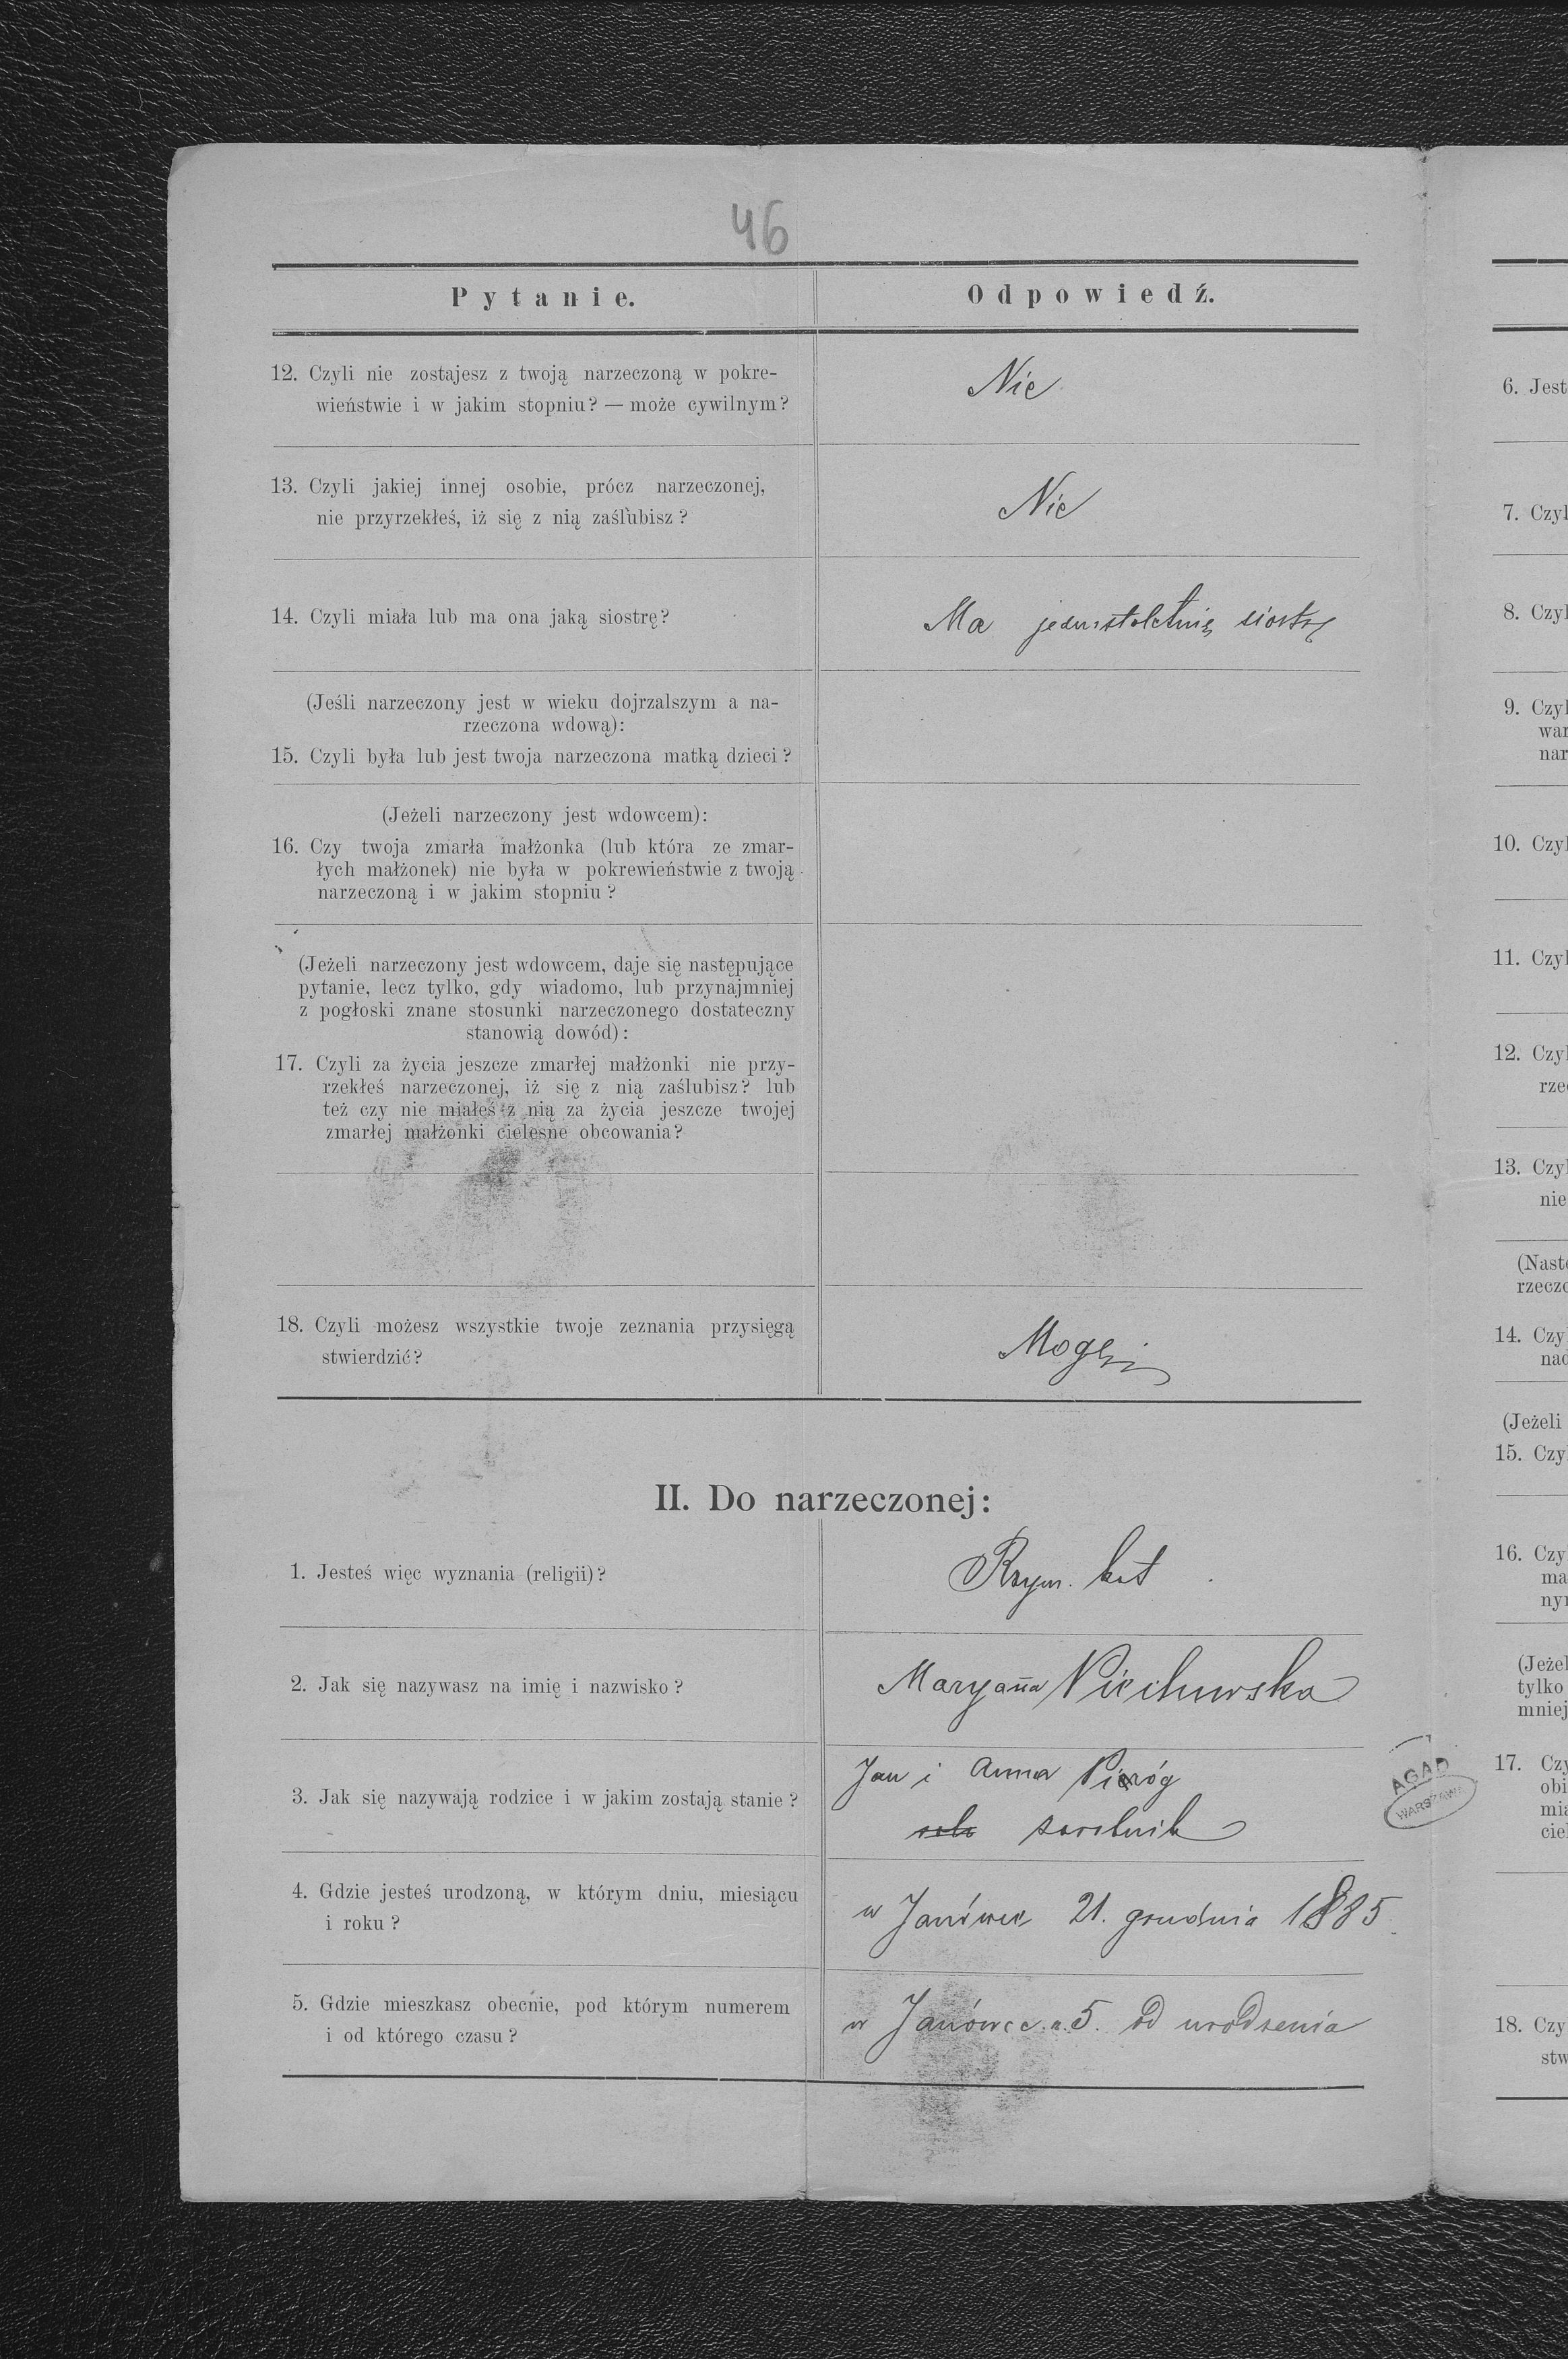 46
Pytanie.
Odpowiedź.
12. Czyli nie zostajesz z twoją narzeczoną w pokre-
wieństwie i w jakim stopniu? — może cywilnym?
Nie
13. Czyli jakiej innej osobie, prócz narzeczonej,
nie przyrzekłeś, iż się z nią zaślubisz?
Nie
14. Czyli miała lub ma ona jaką siostrę?
Ma siostrę
(Jeśli narzeczony jest w wieku dojrzalszym a na-
rzeczona wdową):
15. Czyli była lub jest twoja narzeczona matką dzieci?
(Jeżeli narzeczony jest wdowcem):
16. Czy twoja zmarła małżonka (lub która ze zmar-
łych małżonek) nie była w pokrewieństwie z twoją
narzeczoną i w jakim stopniu?
(Jeżeli narzeczony jest wdowcem, daje się następujące
pytanie, lecz tylko, gdy wiadomo, lub przynajmniej
z pogłoski znane stosunki narzeczonego dostateczny
stanowią dowód):
17. Czyli za życia jeszcze zmarłej małżonki nie przy-
rzekłeś narzeczonej, iż się z nią zaślubisz? lub
też czy nie miałeś z nią za życia jeszcze twojej
zmarłej małżonki cielesne obcowania?
18. Czyli możesz wszystkie twoje zeznania przysięgą
stwierdzić?
Mogę
II. Do narzeczonej:
1. Jesteś więc wyznania (religii)?
Rzym. kat
2. Jak się nazywasz na imię i nazwisko?
Maryanna
3. Jak się nazywają rodzice i w jakim zostają stanie?
Jan i Anna Piróg
zarobnik
4. Gdzie jesteś urodzoną, w którym dniu, miesiącu
i roku?
w Janówce 21. grudnia 1885
5. Gdzie mieszkasz obecnie, pod którym numerem
i od którego czasu?
w Janówce n. 5. Od urodzenia
AGAD
WARSZAWA
6. Jest
7. Czyl
8. Czyl
9. Czyl
war
nar
10. Czyl
11. Czyl
12. Czyl
rze
13. Czyl
nie
(Nast
rzecz
14. Czy
nad
(Jeżeli
15. Czy
16. Czy
ma
nyn
(Jeżel
tylko
mniej
17. Czy
obi
mia
ciel
18. Czy
stw